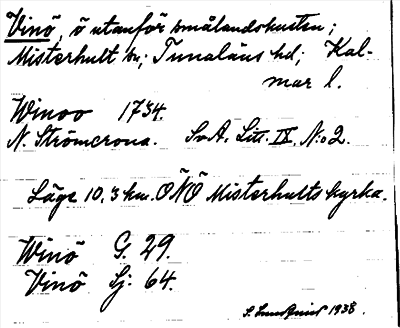 Vinö, ö utanför smålandskusten;
Misterhult sn; Tunaläns hd; Kal-
mar l.
Winoo 1734.
N. Strömcrona. SvA. Litt. IX. N:o 2.
Läge 10,3 km. ONÖ Misterhults kyrka.
Winö G. 29.
Vinö Sj. 64.
1938.